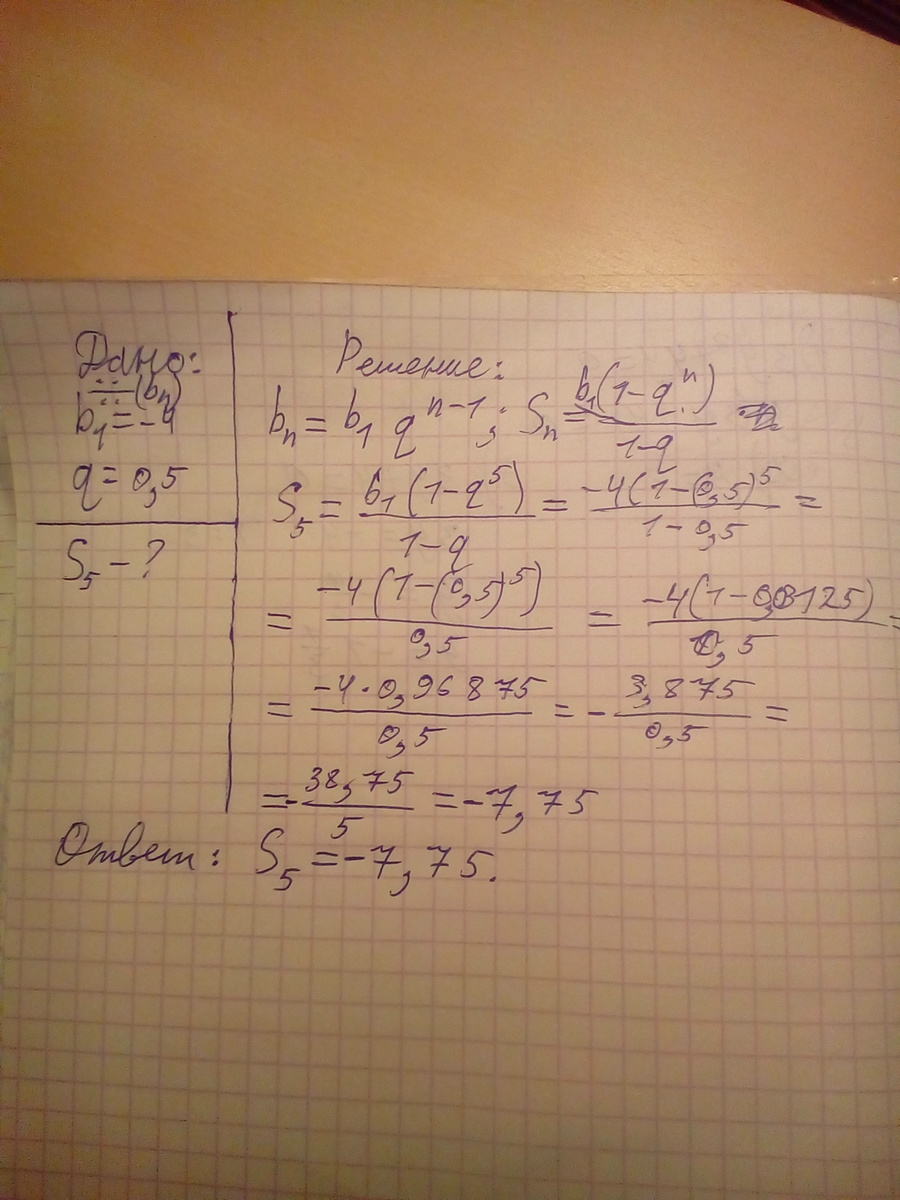 Дано:
÷÷ (bₙ)
b₁ = -4
q = 0,5
S₅ - ?
Решение:
bₙ = b₁ qⁿ⁻¹; Sₙ = b₁(1-qⁿ) / 1-q
S₅ = b₁(1-q⁵) / 1-q = -4(1-0,5)⁵ / 1-0,5 =
= -4(1-(0,5)⁵) / 0,5 = -4(1-0,03125) / 0,5 =
= -4·0,96875 / 0,5 = - 3,875 / 0,5 =
= - 38,75 / 5 = -7,75
Ответ: S₅ = -7,75.